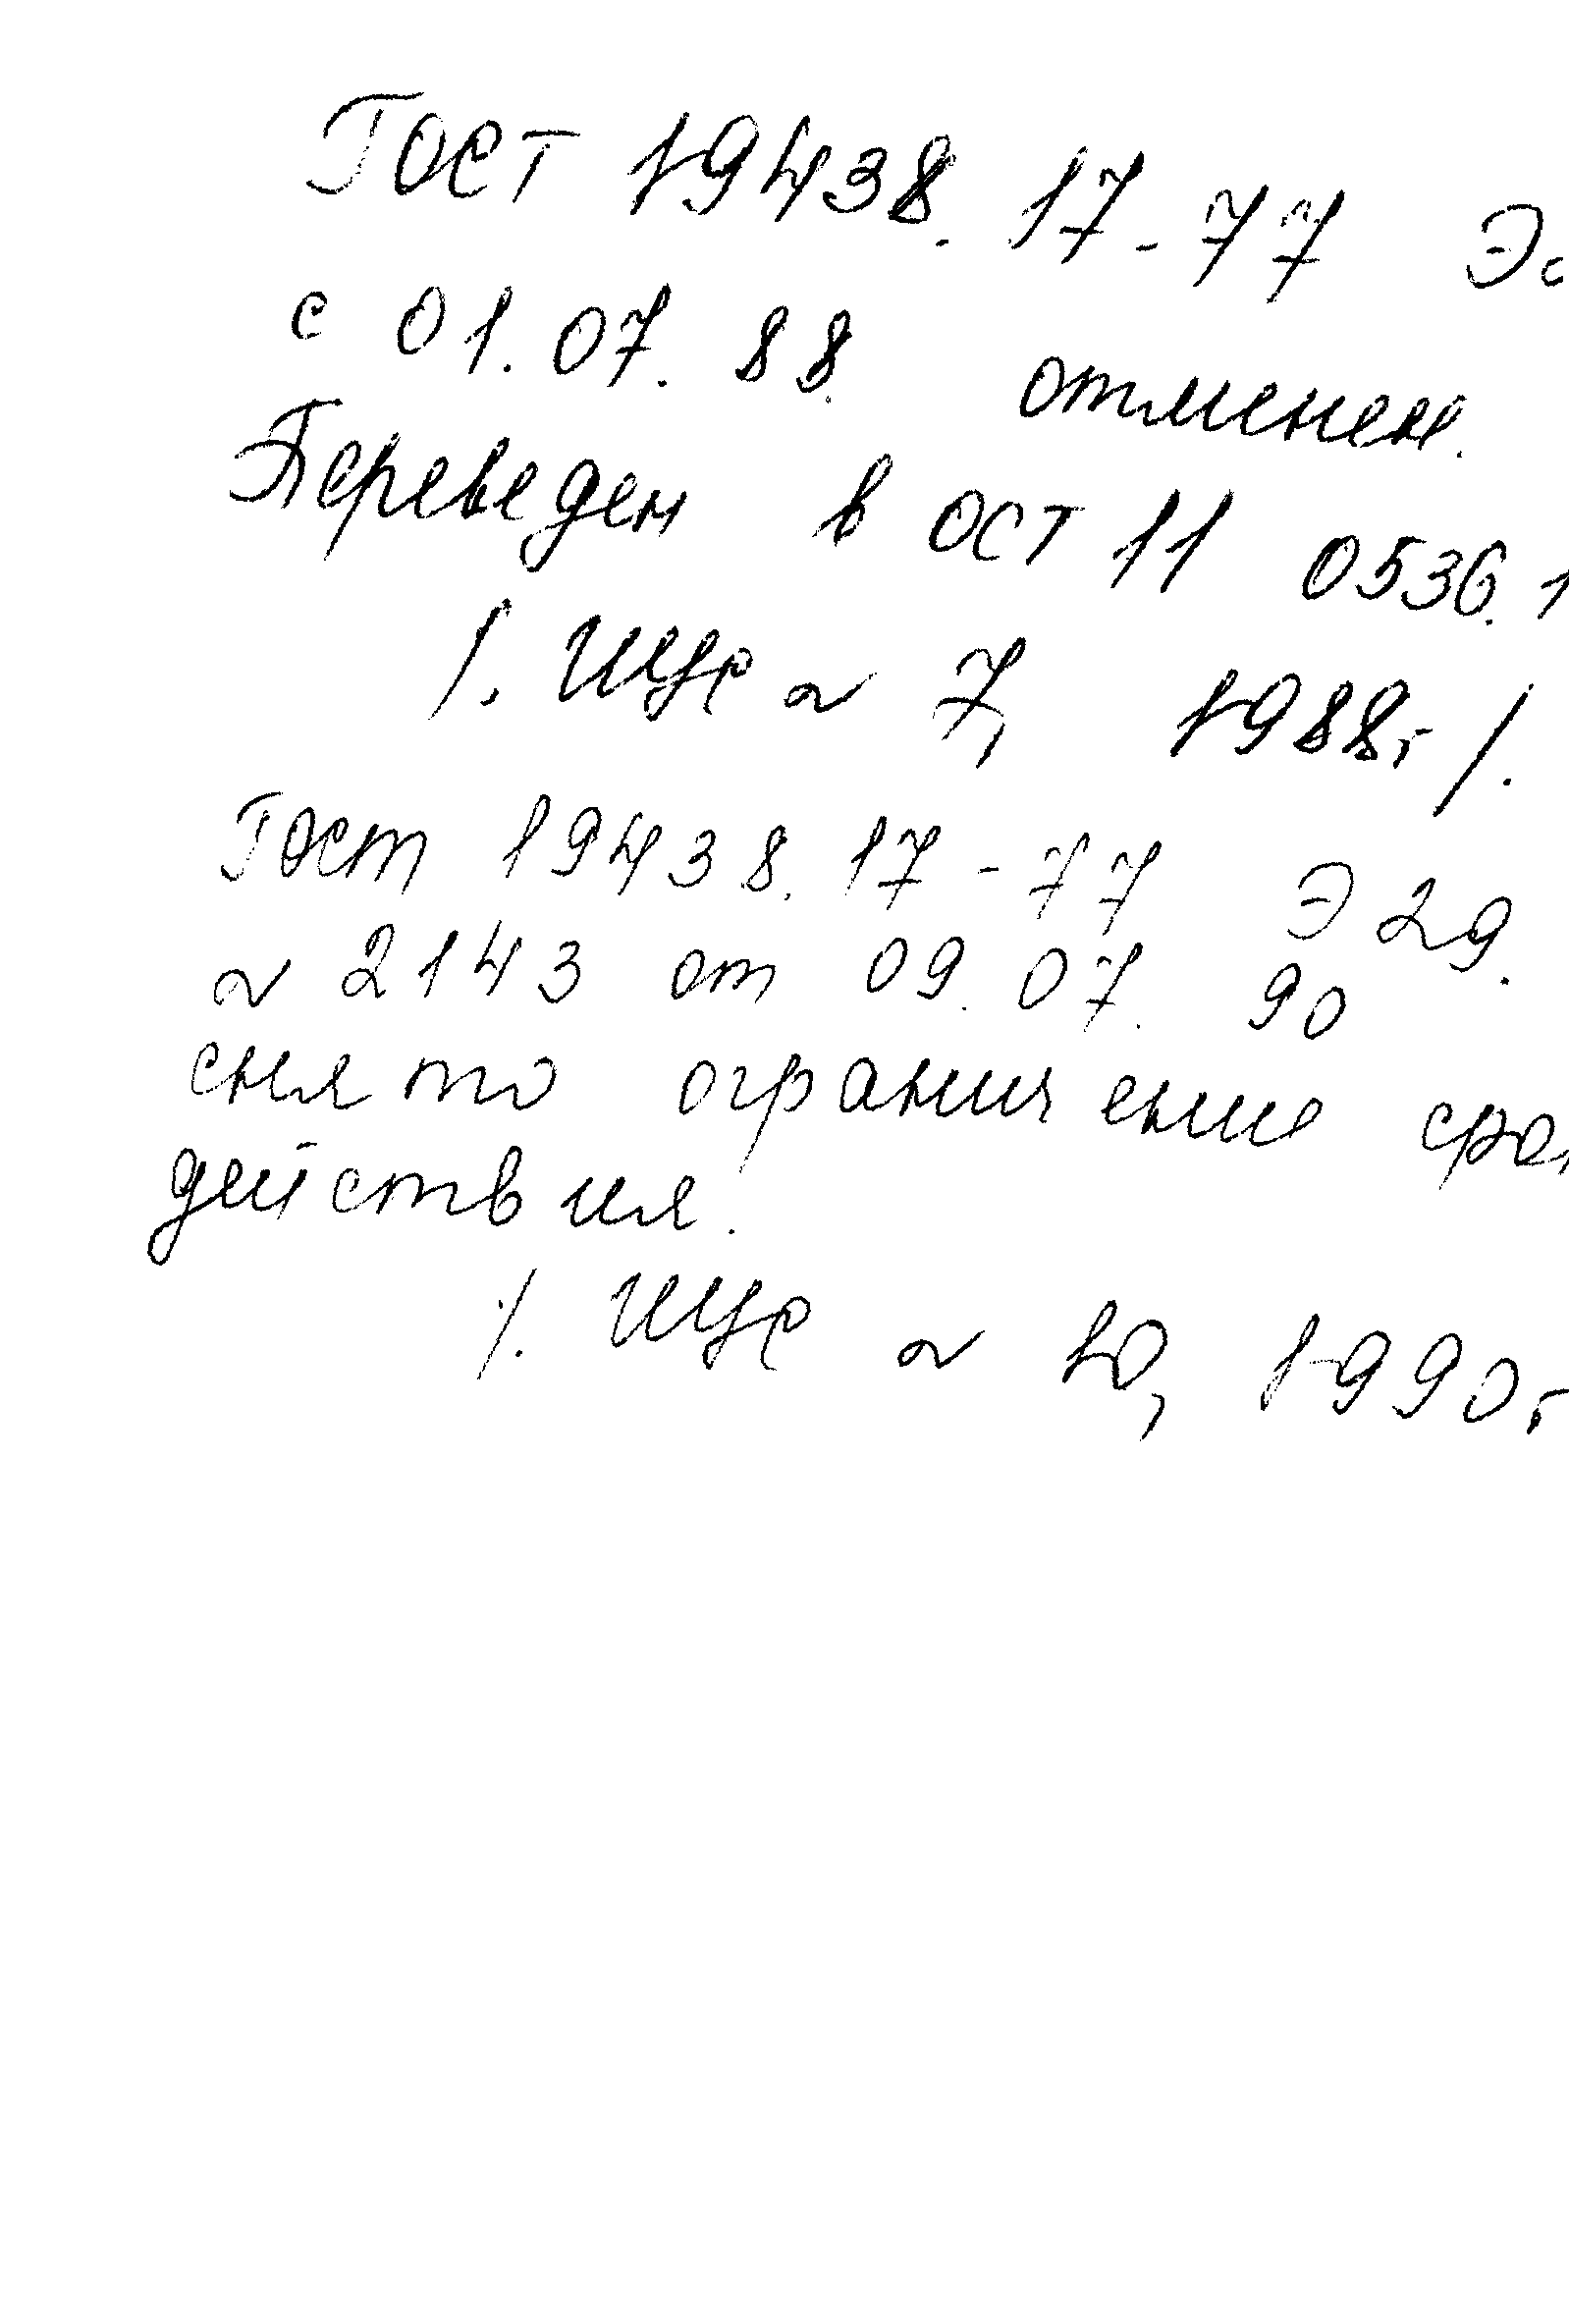 ГОСТ 19438.17-77
с 01.07.88. отменен.
Переведен в ОСТ 11 0536.1
/. ИУС № 7, 1988г /.
Гост 19438.17-77 Э 29.
№ 2143 от 09.07.90
снято ограничение
действия.
/. ИУС № 10, 1990г